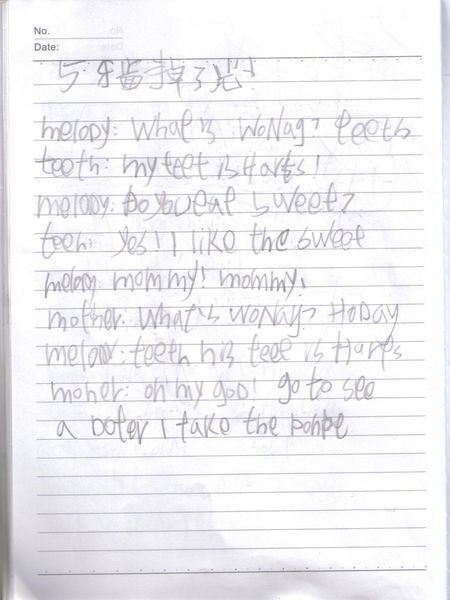 No.
Date:
5 牙齒掉了
melody: What is WoNag? teeth
teeth: my teet is Harts!
melody: Do you eat sweet?
teeh: Yes! I like the sweet
melody: mommy! mommy!
mother: What's WoNag? HoDay
melody: teeth his teet is Harts
moher: oh my goD! go to see
a Doter I take the